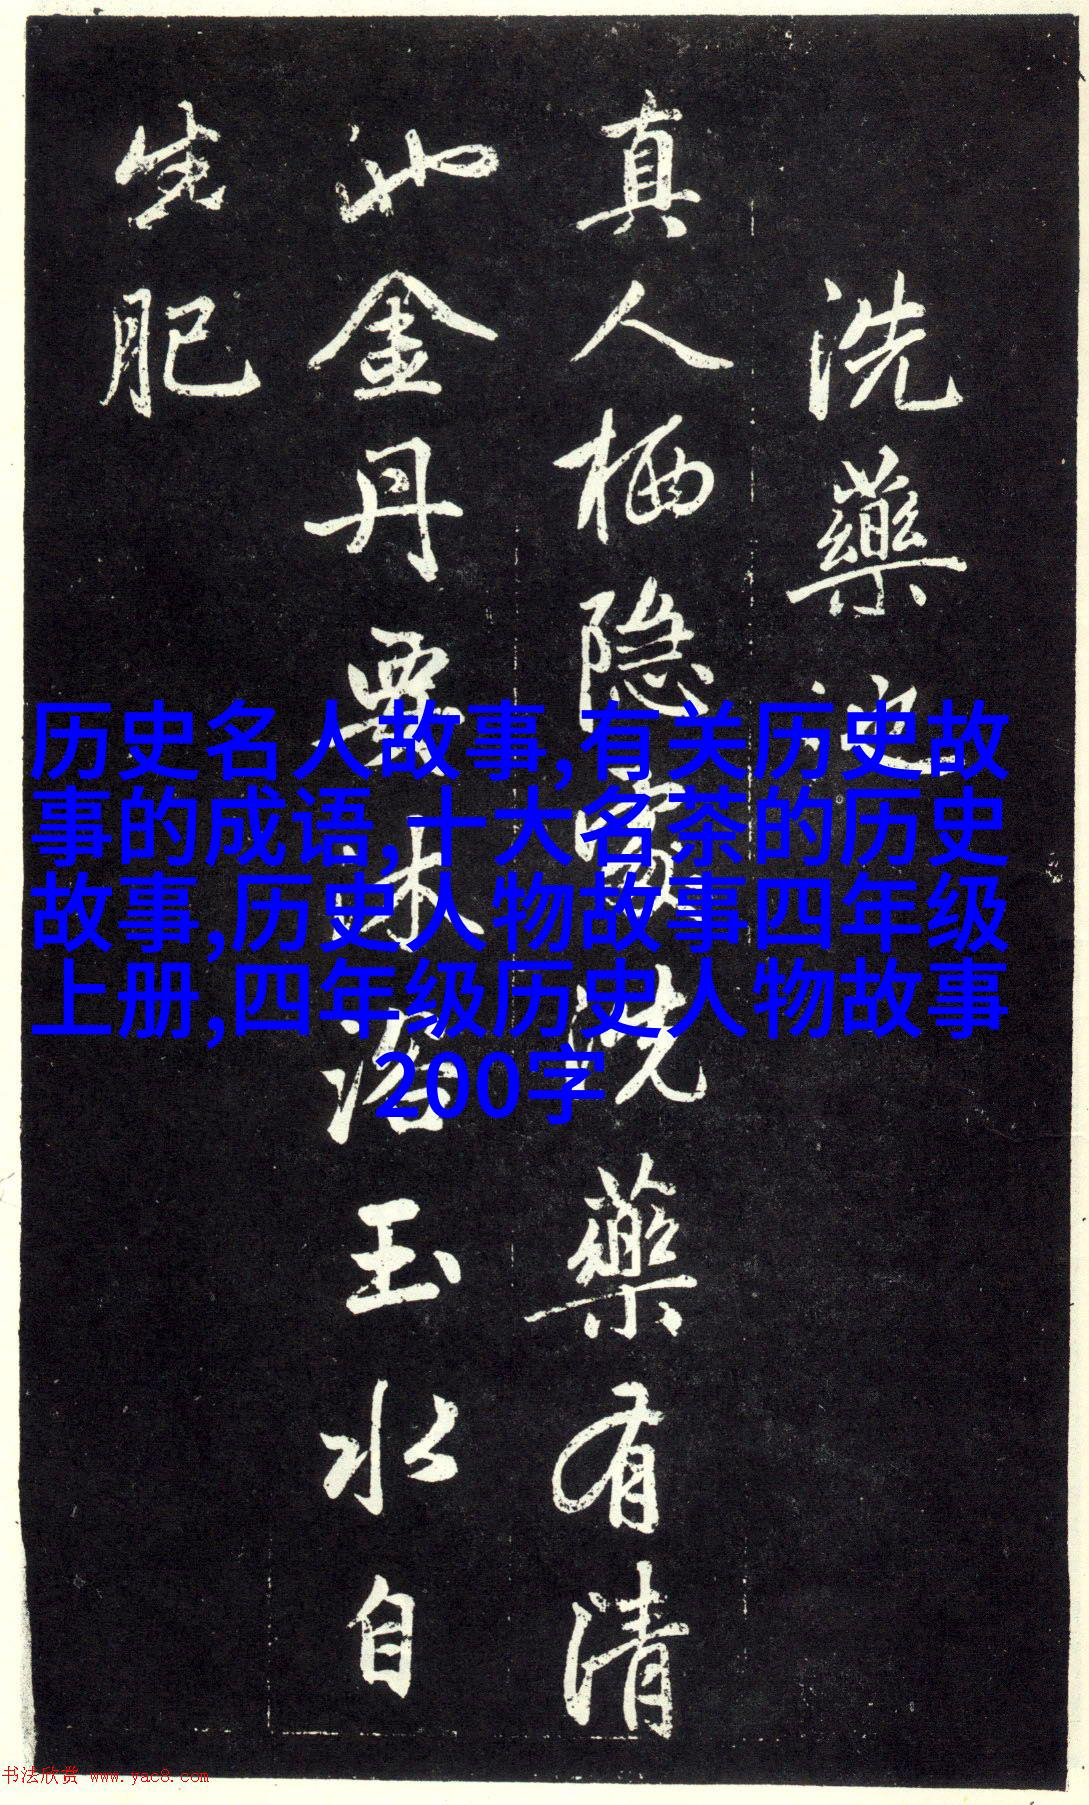 洗藥池
真人栖隐洗藥有清
池金丹要沐浴玉水自
生肥
历史名人故事,有关历史故
事的成语,十大名茶的历史
故事,历史人物故事四年级
上册,四年级历史人物故事
200字
书法欣赏 www.yac8.com